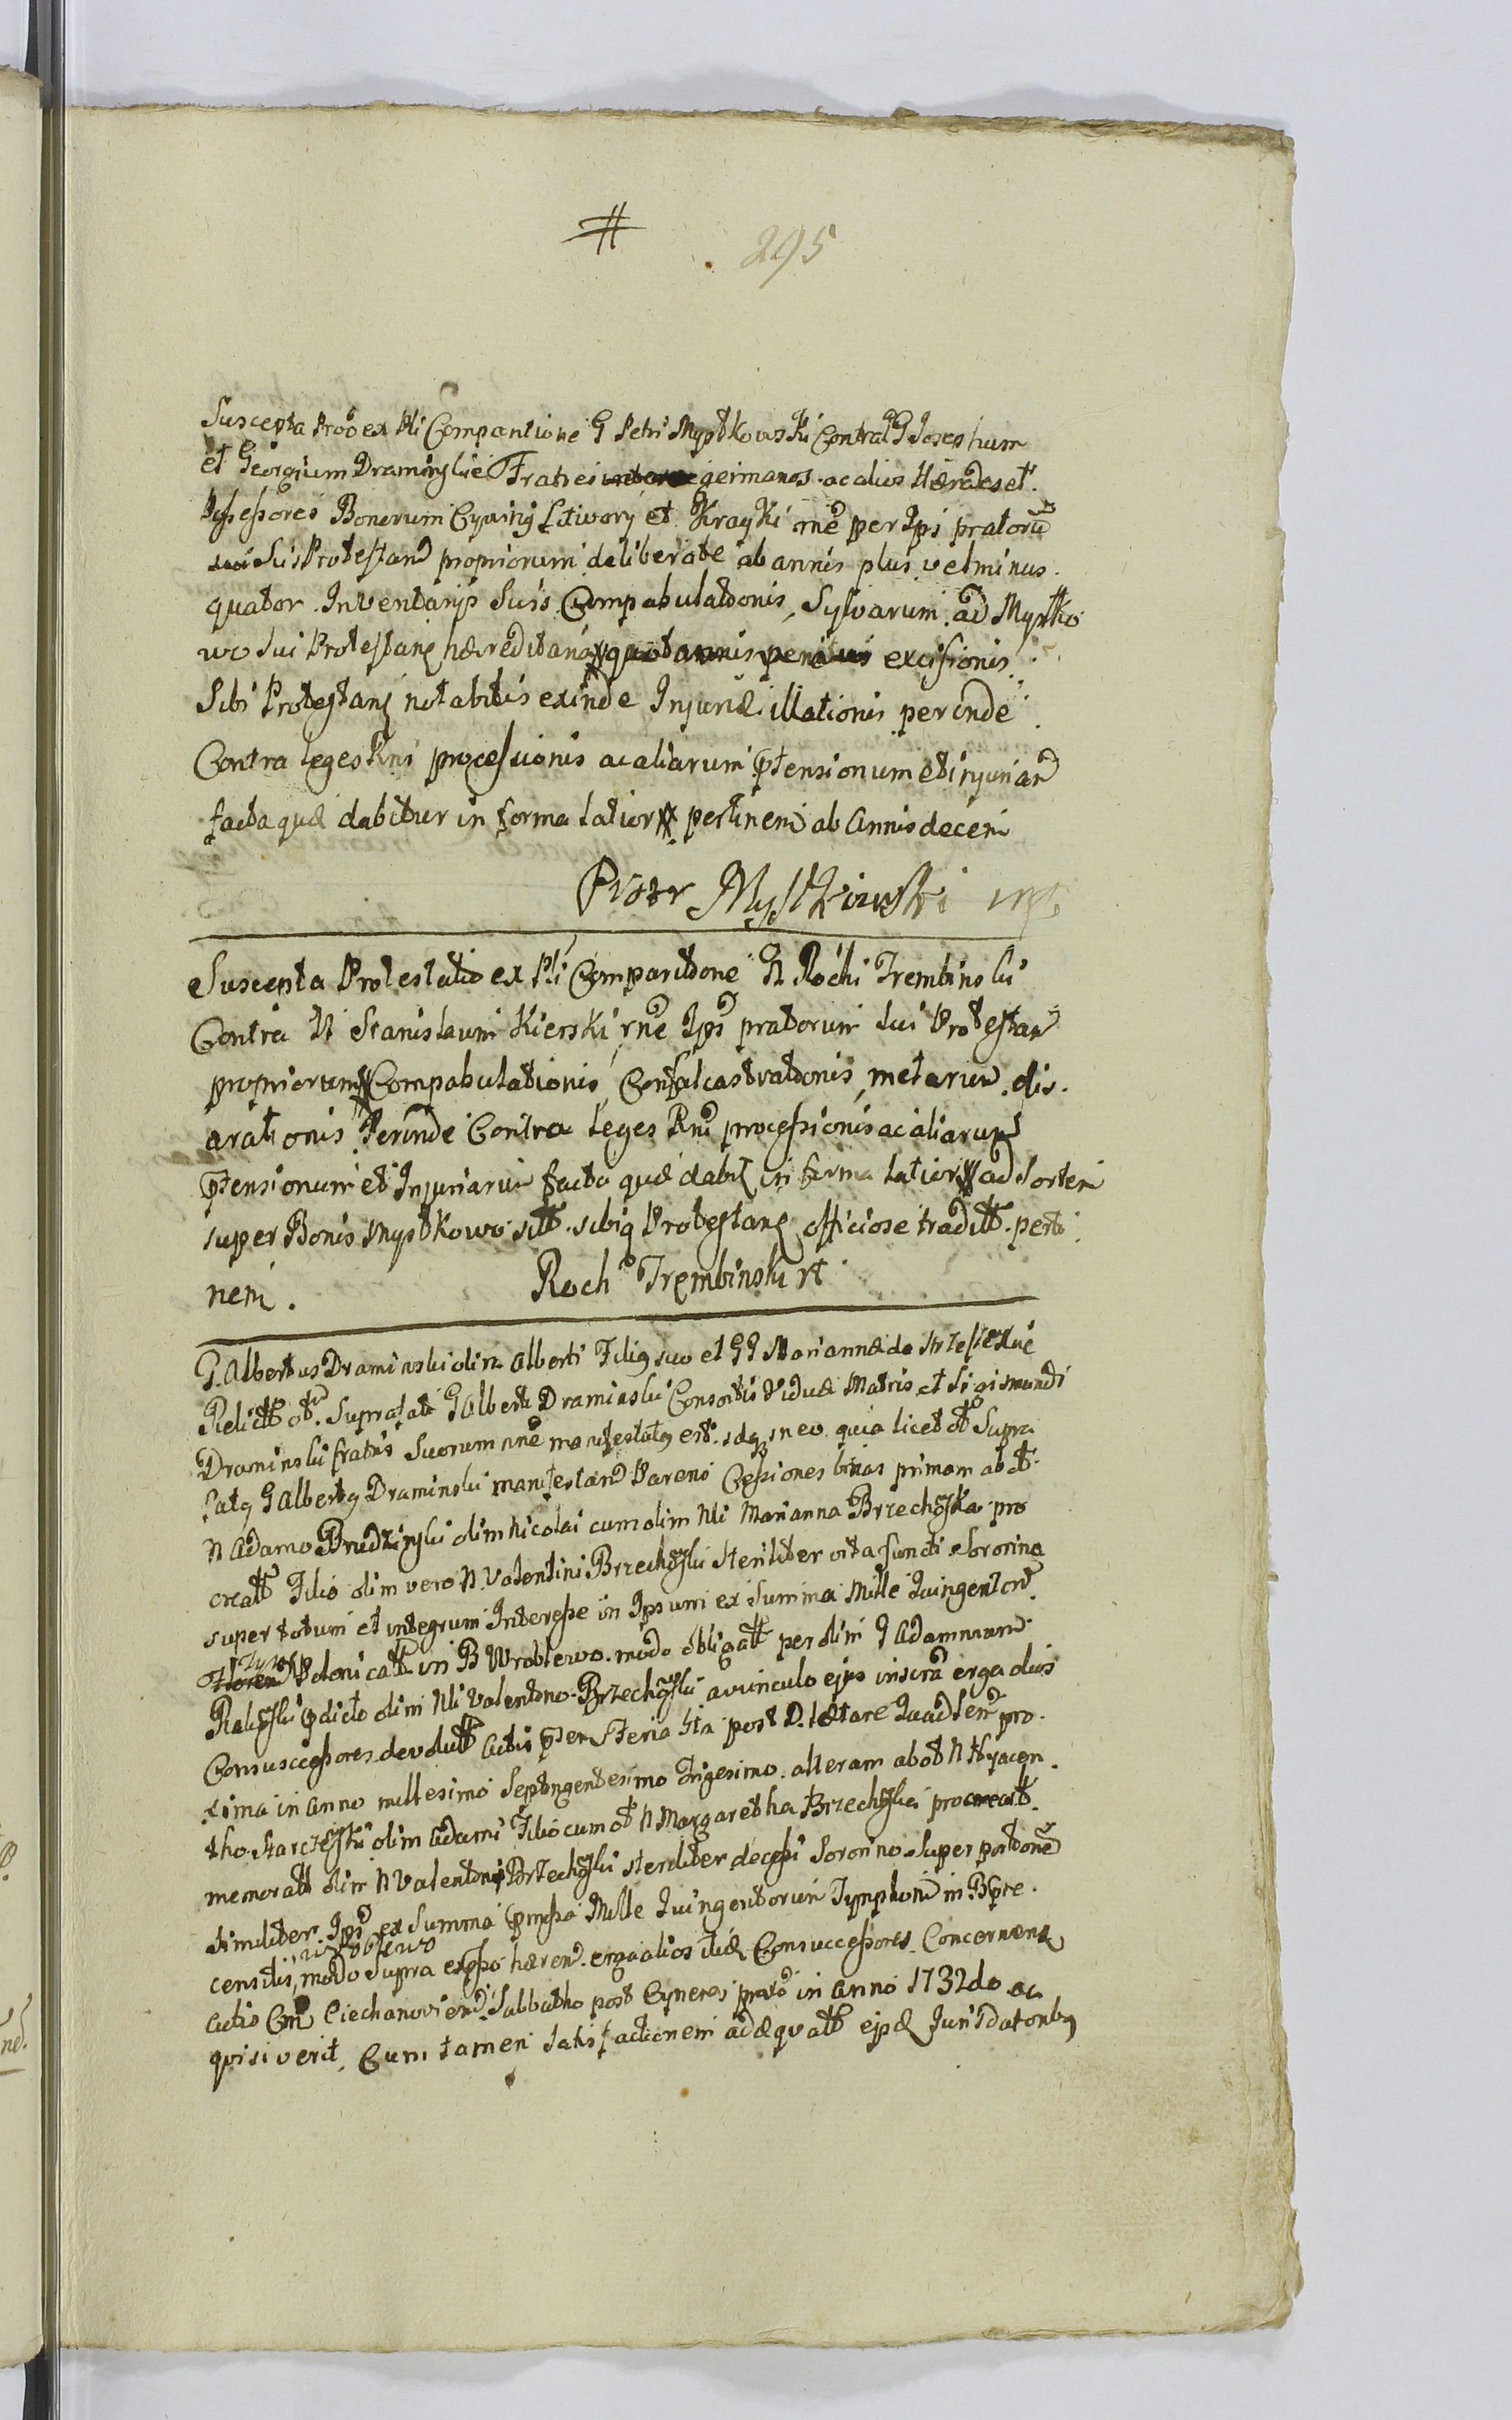 #
295
Suscepta Proto ex Pli Comparitione G Petri Mystkowski Contra GG Josephum
et Georgium Draminskie Fratres germanos ac alios Hæredes et
Possessores Bonorum et Krayki rne per Ips pratorum
sui Protestan propriorum deliberate ab annis plus vel minus
quator Inventarijs Suis Compabulationis, Sylvarum ad Mystko
wo sui Protestang hæreditaria excisionis
Sibi Protestang notabilis exinde Injuriæ illationis perinde
Contra leges Rni processionis ac aliarum ptensionum et injuriar
facta quæ dabitur in forma latiori pertinen ab Annis decem
Piotr Mystkowski mp
Suscepta Protestatio ex Pli Comparitione N Rochi Trembinski
Contra N Stanislaum Kierski rne Ips pratorum sui Protestan
propriorum Compabulationis, Confalcastrationis, metarum dis
arationis Perinde Contra leges Rni processionis ac aliarum
ptensionum et Injuriarum facta quæ dabit in forma latiori ad Sortem
super Bonis Mystkowo sitt sibiq Protestang officiose traditt perti
nen.
Roch Trembinski
G Albertus Draminski olim Alberti Filius suo et GG Mariannæ de
Relictt ot Suprafati G Alberti Draminski Consortis Viduæ Matris et Sigismundi
Draminski fratris Suorum nne manifestatg est idq in eo quia licet ott Supra
fatg G Albertg Draminski manifestan Parens Cessiones binas primam ab ot
N Adamo Brudzinski olim Nicolai cum olim Nli Marianna Brzechoska pro
creatt Filio olim vero N Valentini Brzechoski steriliter vita functi Sororino
super totum et integrum Interesse in Ipsum ex Summa Mille Quingentor
Tymp Polonicall in B Wroblewo modo obligatt per olim G Adammum
pdicto olim Nli Valentino Brzechoski avunculo ejus inscra erga alios
Consuccessores devolutt Actis Feria 5ta post D. Lætare Quadlem pro
xima in anno millesimo Septingentesimo Trigesimo alteram ab ot N Hyacen
tho olim Adami Filio cum ot N Margaretha Brzechoska procreatt
memoratt olim N Valentini Brzechoski steriliter decessi Sororino Super portione
similiter Ips ex Summa pmissa Mille Quingentorum Tymphon in B pre
wroblewo
censitis, modo Supra expso hæren erga alios itidæ Consuccessores Concernens
Actis Cm Ciechanovien Sabbatho post Cyneres prato in anno 1732do ac
quisiverit, Cum tamen satisfactionem adæquatt ejsdæ Juri